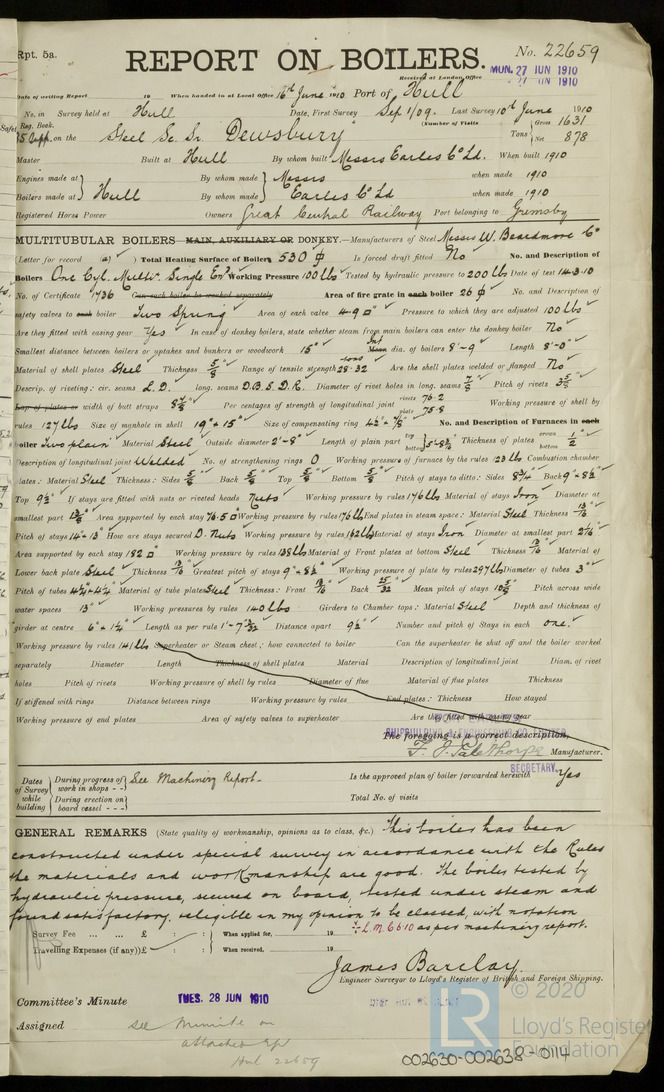 Rpt. 5a.
REPORT ON BOILERS.
No. 22659
Received at London Office
MON. 27 JUN 1910
Date of writing Report 19 When handed in at Local Office 16th June 1910 Port of Hull
No. in Survey held at Hull Date, First Survey Sep 1/09. Last Survey 10th June 1910
Reg. Book.
(Number of Visits
35 Supp. on the Steel Sc. Sr. Dewsbury Tons { Gross 1631 Net 878
Master Built at Hull By whom built Messrs Earles Co Ld. When built 1910
Engines made at } By whom made } Messrs when made 1910
Boilers made at } Hull By whom made } Earles Co Ld when made 1910
Registered Horse Power Owners Great Central Railway Port belonging to Grimsby
MULTITUBULAR BOILERS MAIN, AUXILIARY OR DONKEY.—Manufacturers of Steel Messrs W. Beardmore Co
(Letter for record (a)) Total Heating Surface of Boilers 530 ф Is forced draft fitted No No. and Description of
Boilers One Cyl. Multr. Single End Working Pressure 100 lbs Tested by hydraulic pressure to 200 lbs Date of test 14.3.10
No. of Certificate 1736 Can each boiler be worked separately Area of fire grate in each boiler 26 ф No. and Description of
safety valves to each boiler Two Spring Area of each valve 4.90 □" Pressure to which they are adjusted 100 lbs
Are they fitted with easing gear Yes In case of donkey boilers, state whether steam from main boilers can enter the donkey boiler No
Smallest distance between boilers or uptakes and bunkers or woodwork 15" Int Mean dia. of boilers 8'-9" Length 8'-0"
Material of shell plates Steel Thickness 5/8 Range of tensile strength 28-32 tons Are the shell plates welded or flanged No
Descrip. of riveting: cir. seams L.D. long. seams D.B.S.D.R. Diameter of rivet holes in long. seams 7/8 Pitch of rivets 3 5/8
Lap of plates or width of butt straps 8 3/4 Per centages of strength of longitudinal joint rivets 76.2 plate 75.8 Working pressure of shell by
rules 127 lbs Size of manhole in shell 19" x 15" Size of compensating ring 4 1/2 x 7/8" No. and Description of Furnaces in each
boiler Two plain Material Steel Outside diameter 2'-8" Length of plain part top bottom 5'-8 3/4 Thickness of plates crown bottom 1/2"
Description of longitudinal joint Welded No. of strengthening rings 0 Working pressure of furnace by the rules 123 lbs Combustion chamber
plates: Material Steel Thickness: Sides 5/8 Back 5/8 Top 5/8 Bottom 5/8 Pitch of stays to ditto: Sides 8 3/4 Back 9" x 8 1/2
Top 9 1/2" If stays are fitted with nuts or riveted heads Nuts Working pressure by rules 176 lbs Material of stays Iron Diameter at
smallest part Area supported by each stay 76.5 □" Working pressure by rules 176 lbs End plates in steam space: Material Steel Thickness 13/16
Pitch of stays 14 x 13" How are stays secured D. Nuts Working pressure by rules 162 lbs Material of stays Iron Diameter at smallest part 2 1/16"
Area supported by each stay 182 □" Working pressure by rules 138 lbs Material of Front plates at bottom Steel Thickness 13/16 Material of
Lower back plate Steel Thickness 13/16 Greatest pitch of stays 9" x 8 1/2 Working pressure of plate by rules 297 lbs Diameter of tubes 3"
Pitch of tubes 4 1/4 x 4 1/4" Material of tube plates Steel Thickness: Front 13/16 Back 25/32 Mean pitch of stays 10 5/8 Pitch across wide
water spaces 13" Working pressures by rules 140 lbs Girders to Chamber tops: Material Steel Depth and thickness of
girder at centre 6" x 1 1/4" Length as per rule 1'-7 3/32 Distance apart 9 1/2 Number and pitch of Stays in each one.
Working pressure by rules 141 lbs Superheater or Steam chest; how connected to boiler Can the superheater be shut off and the boiler worked
separately Diameter Length Thickness of shell plates Material Description of longitudinal joint Diam. of rivet
holes Pitch of rivets Working pressure of shell by rules Diameter of flue Material of flue plates Thickness
If stiffened with rings Distance between rings Working pressure by rules End plates: Thickness How stayed
Working pressure of end plates Area of safety valves to superheater Are they fitted with easing gear
SHIPBUILDING & ENGINEERING CO LIMITED
The foregoing is a correct description,
F. J. Palethorpe Manufacturer.
SECRETARY.
Dates of Survey while building { During progress of work in shops - - } See Machinery Report. Is the approved plan of boiler forwarded herewith Yes
{ During erection on board vessel - - - } Total No. of visits
GENERAL REMARKS (State quality of workmanship, opinions as to class, &c.) This boiler has been
constructed under special survey in accordance with the Rules
the materials and workmanship are good. The boiler tested by
hydraulic pressure, secured on board, tested under steam and
found satisfactory, & eligible in my opinion to be classed, with notation
L.M.C. 6.10 as per machinery report.
Survey Fee ... ... £ : : When applied for, 19
Travelling Expenses (if any) £ : : When received, 19
James Barclay
Engineer Surveyor to Lloyd's Register of British and Foreign Shipping.
Committee's Minute TUES. 28 JUN 1910
Assigned see Minute on
attached rpt
Hul 22659
LR
© 2020
Lloyd's Register
Foundation
002630-002638-0114